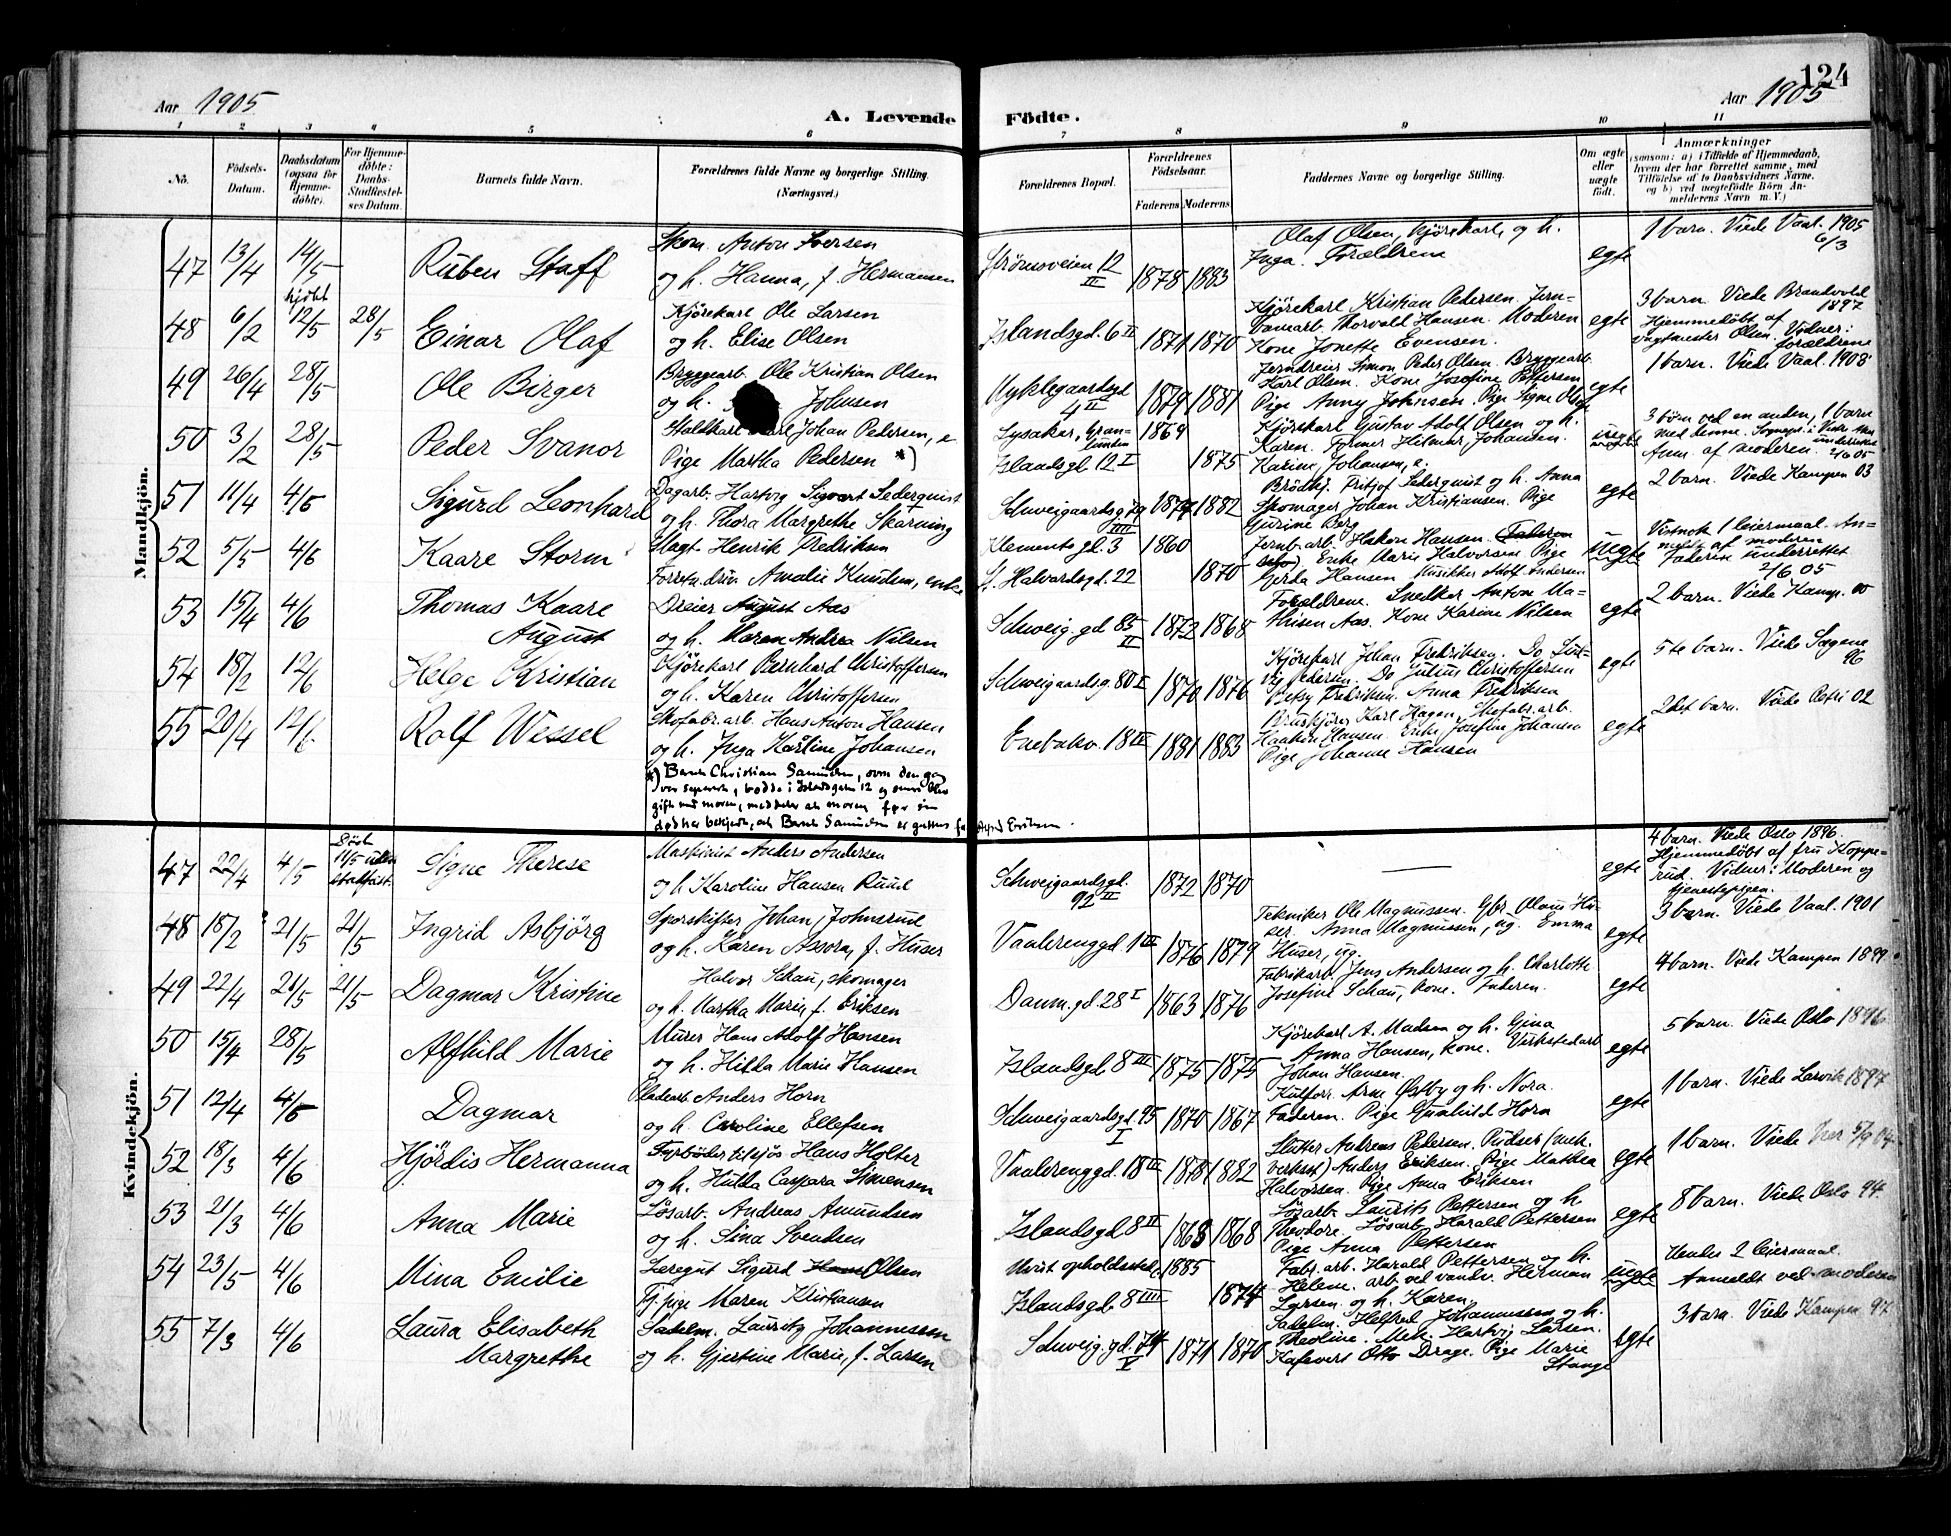 124
Aar 1905
A. Levende Födte.
Aar 1905
1 2 3 4 5 6 7 8 9 10 11
No.
Födsels-Datum.
Daabsdatum (ogsaa for Hjemme-döbte).
For Hjemme-döbte: Daabs-Stadfæstel-ses Datum.
Barnets fulde Navn.
Forældrenes fulde Navne og borgerlige Stilling. (Næringsvei.)
Forældrenes Bopæl.
Forældrenes Födselsaar.
Faderens Moderens
Faddernes Navne og borgerlige Stilling.
Om ægte eller uægte födt.
Anmærkninger
(saasom: a) i Tilfælde af Hjemmedaab, hvem der har forrettet samme, med Tilföielse af to Daabsvidners Navne, og b) ved uægtefödte Börn An-melderens Navn m. V.)
Mandkjön.
47 13/4 14/5 Ruben Staff
Skom. Anton Iversen
og h. Hanna, f. Hermansen
Strømsveien 12 III 1878 1883
Olaf Olsen, kjørekarl, og h.
Inga. Forældrene
egte
1 barn. Viede Vaal. 1905 6/3
48 6/2 hjdbt 12/5 28/5 Einar Olaf
Kjörekarl Ole Larsen
og h. Elise Olsen
Islandsgd. 6 II 1871 1870
Kjörekarl Kristian Pedersen. Jern-
banearb. Thorvald Hansen. Moderen
Kone Jonette Evensen.
egte
3 barn. Viede Brandvold 1897
Hjemmedöbt af
vagtmester Olsen. Vidner:
forældrene
49 26/4 28/5 Ole Birger
Bryggearb. Ole Kristian Olsen
og h. Johnsen
Nyklegaardsgd 4 II 1879 1881
Jerndreier Simon Peder Olsen. Bryggearb.
Karl Olsen. Kone Josefine Pettersen
Pige Anny Johnsen. Pige Signe Olsen
egte
1 barn. Viede Vaal. 1903
50 3/2 28/5 Peder Svanor
Staldkarl Karl Johan Pedersen, e
Pige Martha Pedersen *)
Lysaker, Gran-
lunden 1864
Islandsgd. 12 I 1875
Kjörekarl Gustav Adolf Olsen og h.
Karen. Former Helmar Johansen.
Karine Johansen, e.
uegte
3 börn ved en anden, 1 barn
med denne.
Anm. af moderen. underrettet 2/6 05
51 11/4 4/6 Sigurd Leonhard
Dagarb. Hartvig Sigvart Sederquist
og h. Thora Margrethe Skarning
Schweigaardsg. 79 IIII 1877 1882
Brödkj. Fritjof Sederquist og h. Anna
Skomager Johan Kristiansen. Pige
Gurine Berg
egte
2 barn. Viede Kampen 03
52 5/5 4/6 Kaare Storm
Slagt. Henrik Fredriksen
Forretn.driv. Amalie Knudsen, enke
Klementsgd. 3 1860
St. Halvardsgd. 22 1870
Jernb.arb. Hakon Hansen. Faderen
Enke Marie Halvorsen Pige
Gerda Hansen Musikker Adolf Andersen
uegte
Vistnok 1 leiermaal. An-
meldt af moderen
Faderen underrettet
2/6 05
53 15/4 4/6 Thomas Kaare
August
Dreier August Aas
og h. Maren Andrea Nilsen
Schweig.gd 85 II 1872 1868
Forældrene. Snedker Antone Ma-
thisen Aas. Kone Karine Nilsen
egte
2 barn. Viede Kamp. 00
54 18/2 12/6 Helge Kristian
Kjörekarl Bernhard Christoffersen
og h. Karen Christoffersen
Schweigaardsg. 80 II 1870 1876
Kjörekarl Johan Fredriksen. Do Lud-
vig Pedersen. Do Julius Christoffersen
Betsy Fredriksen. Anna Fredriksen
egte
5te barn. Viede Sagene 96
55 20/4 12/6 Rolf Wessel
Skofabr.arb. Hans Anton Hansen
og h. Inga Karline Johansen
Enebakv. 18 III 1881 1883
Karl Hagen. Skofabr.arb.
Haakon Hansen. Enke Josefine Johansen
Pige Johanne Hansen
egte
2det barn. Viede Petri 02
*) Bernh. Christian Samuelsen, som den gang
var separert, bodde i Islandsgaten 12 og senere blev
gift med moren, meddeler at moren før sin
død har bekjendt, at Bernh. Samuelsen er guttens far. Alfred Eriksen.
Kvindekjön.
47 22/4 4/5 Död 11/5 uden stadfæst. Signe Therese
Maskinist Anders Andersen
og h Karoline Hansen Ruud
Schweigaardsgd. 92 II 1872 1870
—
egte
4 barn. Viede Oslo 1896.
Hjemmedöbt af fru Koppe-
rud. Vidner: Moderen og
tjenestepigen.
48 18/2 21/5 21/5 Ingrid Asbjörg
Sporskifter Johan Johnsrud
og h. Karen Assora, f. Huser
Vaalerenggd. 1 III 1876 1879
Tekniker Ole Magnussen. Gbr. Olavus Hu-
ser. Anna Magnussen, ug. Emma
Huser, ug.
egte
3 barn. Viede Vaal. 1901
49 22/4 21/5 21/5 Dagmar Kristine
Halvor Schau, skomager
og h. Martha Marie, f. Eriksen
Danm.gd. 28 I 1863 1876
Fabrikarb. Jens Andersen og h. Charlotte
Josefine Schau, kone. Faderen.
egte
4 barn. Viede Kampen 1899
50 15/4 28/5 Alfhild Marie
Murer Hans Adolf Hansen
og h. Hilda Marie Hansen
Islandsgd. 8 III 1875 1875
Kjörekarl A. Madsen og h. Gina
Anna Hansen, kone. Virkstedarb
Johan Hansen.
egte
5 barn. Viede Oslo 1896
51 12/4 4/6 Dagmar
Pladearb. Anders Horn
og h. Caroline Ellefsen
Schweigaardsgd. 95 I 1870 1867
Kulforr. Arne Østby og h. Nora.
Faderen. Pige Gunhild Horn
egte
1 barn. Viede Larvik 1897
52 18/3 4/6 Hjördis Hermanna
Fyrböder tilsjös Hans Holter
og h. Hulda Caspara Simensen
Vaalerenggd. 18 II 1878 1882
Slutter Andreas Pedersen. Pudser (mek.
verkst) Anders Eriksen. Pige Mathea
Halvorsen. Pige Anna Eriksen
egte
1 barn. Viede her 5/9 04.
53 21/3 4/6 Anna Marie
Lösarb. Andreas Amundsen
og h. Sina Svendsen
Islandsgd 8 II 1868 1868
Lösarb. Laurits Pettersen og h
Theodore. Lösarb. Harald Pettersen
Pige Anna Pettersen
egte
8 barn. Viede Oslo 94.
54 23/5 4/6 Mina Emilie
Læregut Sigurd Olsen
Tj.pige Maren Kristiansen
Uvist opholdssted 1885
Islandsgd. 8 IIII 1874
Fabr.arb. Harald Pettersen og h.
Helene. arb. ved vandv. Herman
Larsen og h. Karen.
uegte
Hendes 2 leiermaal.
Anmeldt ved moderen
55 7/3 4/6 Laura Elisabeth
Margrethe
Sadelm. Lauritz Johannessen
og h. Gjertine Marie, f. Larsen
Schweig.gd. 74 V 1871 1870
Sadelm. Helfred Johannessen og h.
Theoline. Mek. Hartvig Larsen.
Otto Drage. Pige Marie
Stange
egte
3 barn. Viede Kampen 97.